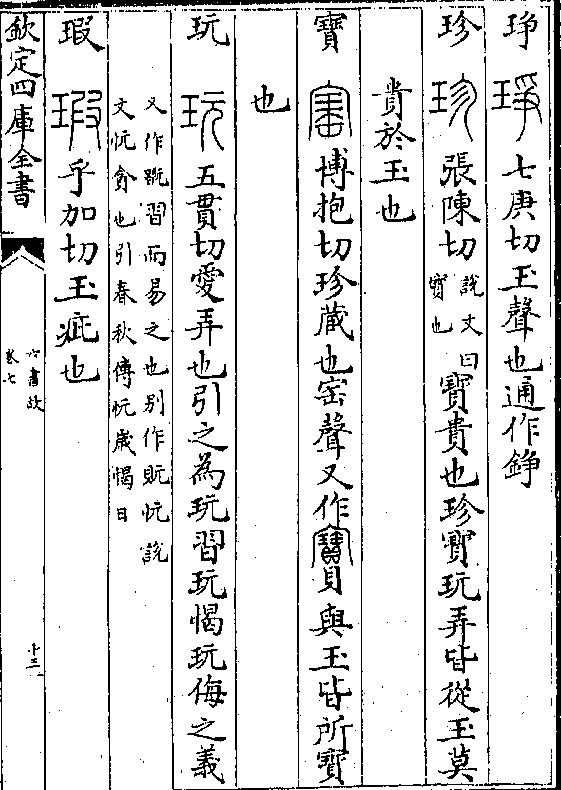 琤 琤 七庚切玉聲也通作錚
珍 珍 張陳切說文曰寶也寶貴也珍寶玩弄皆從玉莫
貴於玉也
寶 寚 博抱切珍藏也缶聲又作寶貝與玉皆所寶
也
玩 玩 五貫切愛弄也引之為玩習玩愒玩侮之義
又作翫習而易之也别作貦忨說
文忨貪也引春秋傳忨歲愒日
瑕 瑕 乎加切玉疵也
欽定四庫全書
六書故
卷七
十三